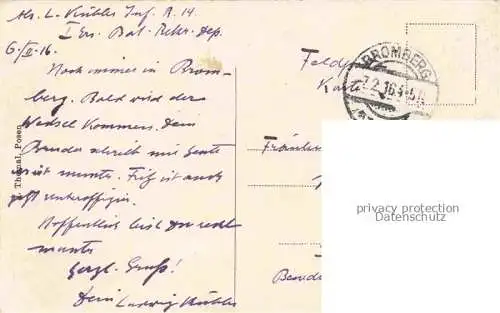 Abs. L. Kübler Inf. R. 14.
I Ers. Bat. Rekr. Dep.
6/II-16.
Noch immer in Brom-
berg. Bald wird der
Wechsel kommen. Dein
Bruder schreibt mir heute
er ist munter. Fritz ist auch
jetzt unteroffizier.
Hoffentlich bist Du recht
munter
Herzl. Gruß!
Dein Ludwig Kübler
Thomal, Posen
Feldp.
Karte
BROMBERG
7.2.16
Fräulein
privacy protection
Datenschutz